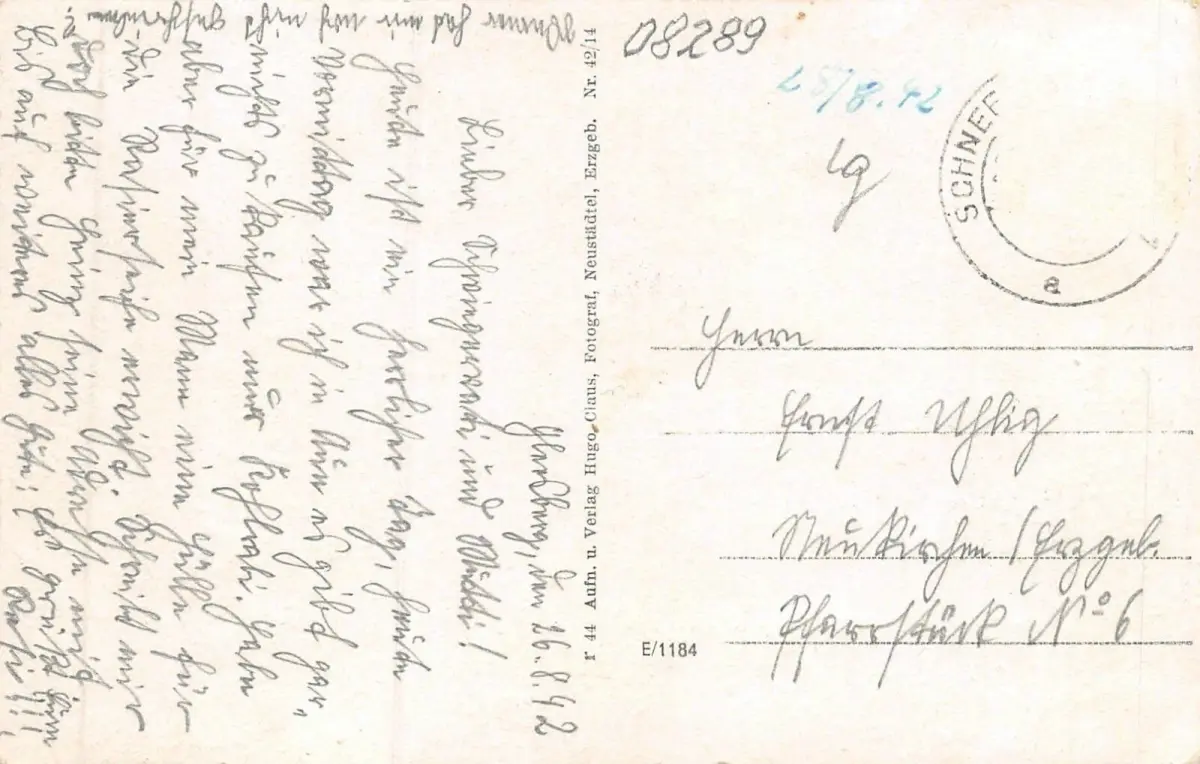 08289
28/8.42
lg
SCHNEE
a
Herrn
Ernst Uhlig
Neukirchen / Erzgeb.
Pfarrstück No 6
E/1184
r 44 Aufn. u. Verlag Hugo Claus, Fotograf, Neustädtel, Erzgeb. Nr. 42/14
den 26.8.42
Lieber Schwiegervati und Mutti!
Heute ist ein herrlicher Tag, heute
Vormittag war ich in Aue es gibt gar
nichts zu kaufen nur Kohlrabi. Habe
aber für mein Mann eine Hülle für
die Rasierseife erwischt. Schreibt mir
doch bitte Heinz seine Adresse mich
bis auf weiteres alles Gute! Es grüßt Euch
Werner hat mir noch nicht geschrieben?